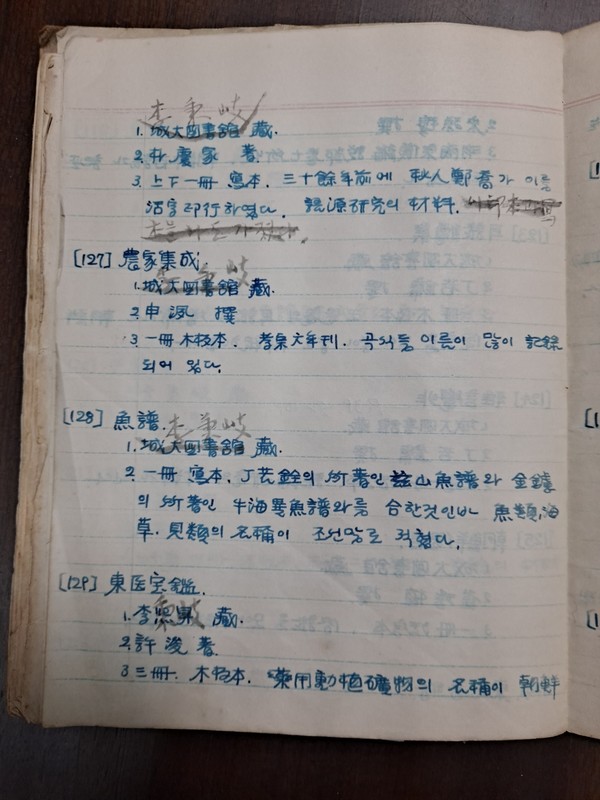 李秉岐
1. 城大图書館 藏.
2. 朴慶家 著.
3. 上下一冊 寫本. 三十餘年前에 秋人鄭喬가 이를
活字印行하였다. 語源研究의 材料.
[127] 農家集成.
李秉岐
1. 城大图書館 藏.
2. 申洬 撰
3. 一冊 木板本. 孝宗六年刊. 곡식들 이름이 많이 記録
되어 있다.
[128] 魚譜.
李秉岐
1. 城大图書館 藏.
2. 一冊 寫本. 丁若銓의 所著인 玆山魚譜와 金鑢
의 所著인 牛海異魚譜와를 合한것인바 魚類, 海
草. 貝類의 名稱이 조선말로 적혔다.
[129] 東医宝鑑.
1. 李熙昇 藏.
秉岐
2. 許浚 著.
3. 三冊. 木板本. 薬用動植礦物의 名稱이 朝鮮